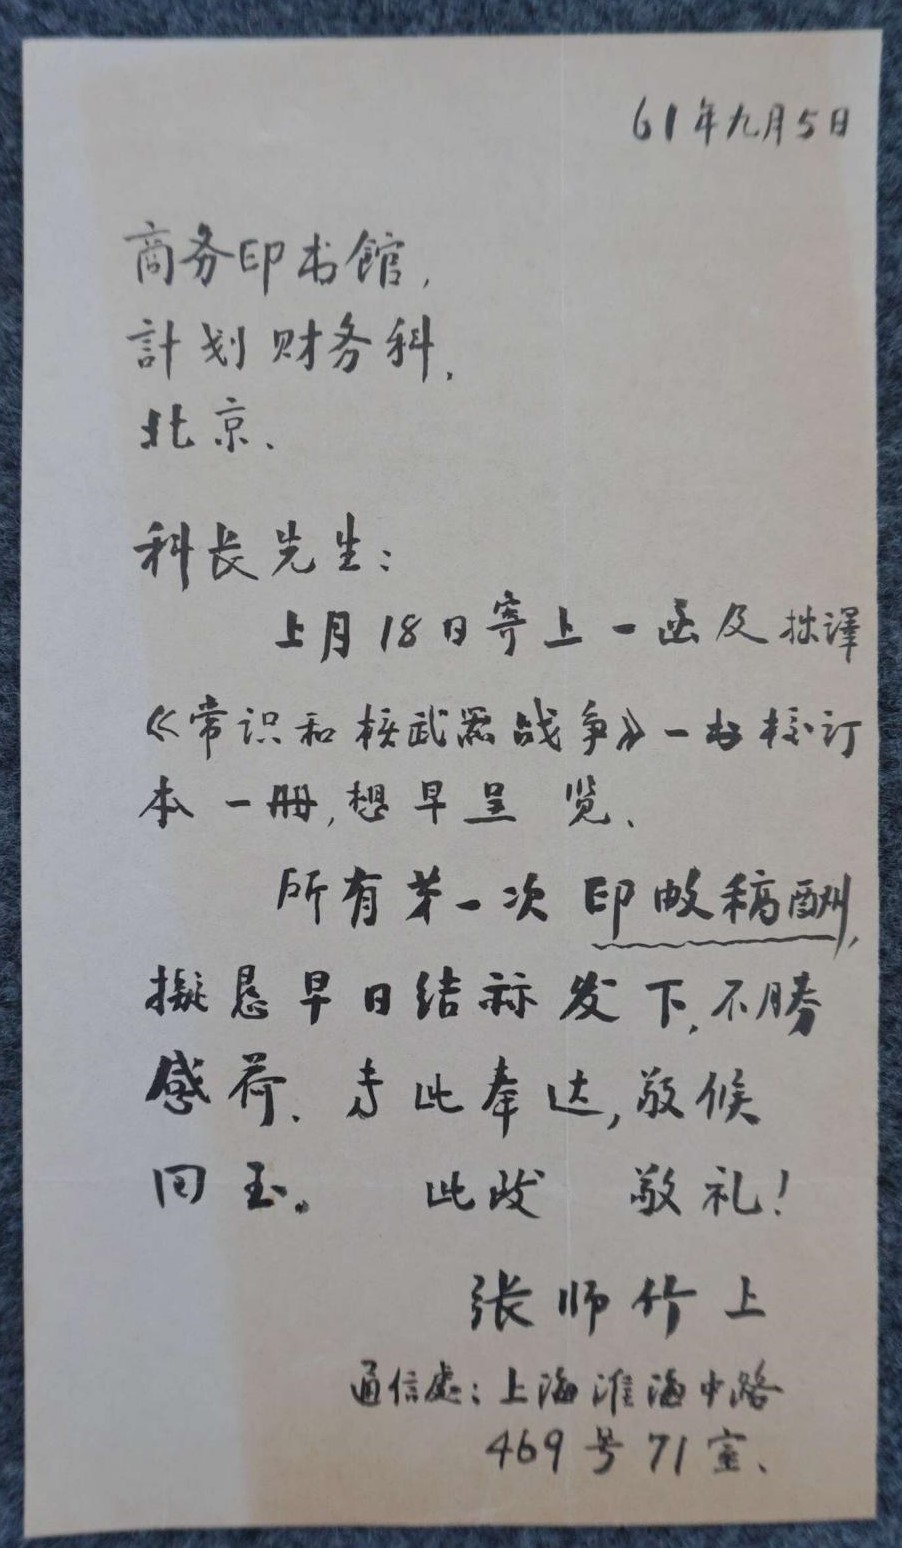 61年九月5日
商务印书馆,
計划财务科、
北京、
科长先生：
上月18日寄上一函及拙譯
《常识和核武器战争》一书校订
本一册,想早呈览、
所有第一次印数稿酬,
擬恳早日结称发下,不勝
感荷、专此奉达,敬候
回玉。 此致 敬礼!
张师竹上
通信處：上海淮海中路
469号71室、